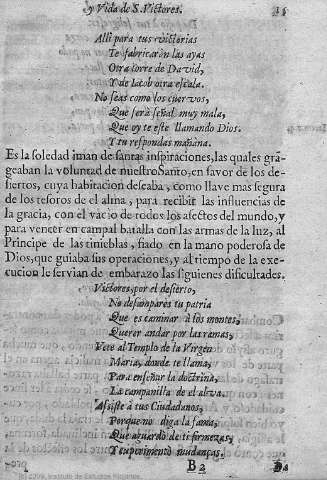 y Vida de S. Victores. 15
Alli para tus victorias
Te fabricaràn las ayas
Otra torre de David,
Y de Iacob otra escala.
No seas como los cuervos,
Que serà señal muy mala,
Que oy te estè llamando Dios.
Y tu respondas mañana.
Es la soledad iman de santas inspiraciones, las quales grã-
geaban la voluntad de nuestro Santo, en favor de los de-
siertos, cuya habitacion deseaba, como llave mas segura
de los tesoros de el alma, para recibir las influencias de
la gracia, con el vacio de todos los afectos del mundo, y
para vencer en campal batalla con las armas de la luz, al
Principe de las tinieblas, fiado en la mano poderosa de
Dios, que guiaba sus operaciones, y al tiempo de la exe-
cucion le servian de embarazo las siguienes dificultades.
Victores, por el desierto,
No desampares tu patria
Que es caminar à los montes,
Querer andar por las ramas,
Vete al Templo de la Virgen
Maria, donde te llama,
Para enseñar la doctrina,
La campanilla de el alva.
Assiste à tus Ciudadanos,
Porque no diga la fama,
Que aguardò de ti firmezas,
Y experimentò mudanças.
B 2
(c) 2009, Instituto de Estudios Riojanos